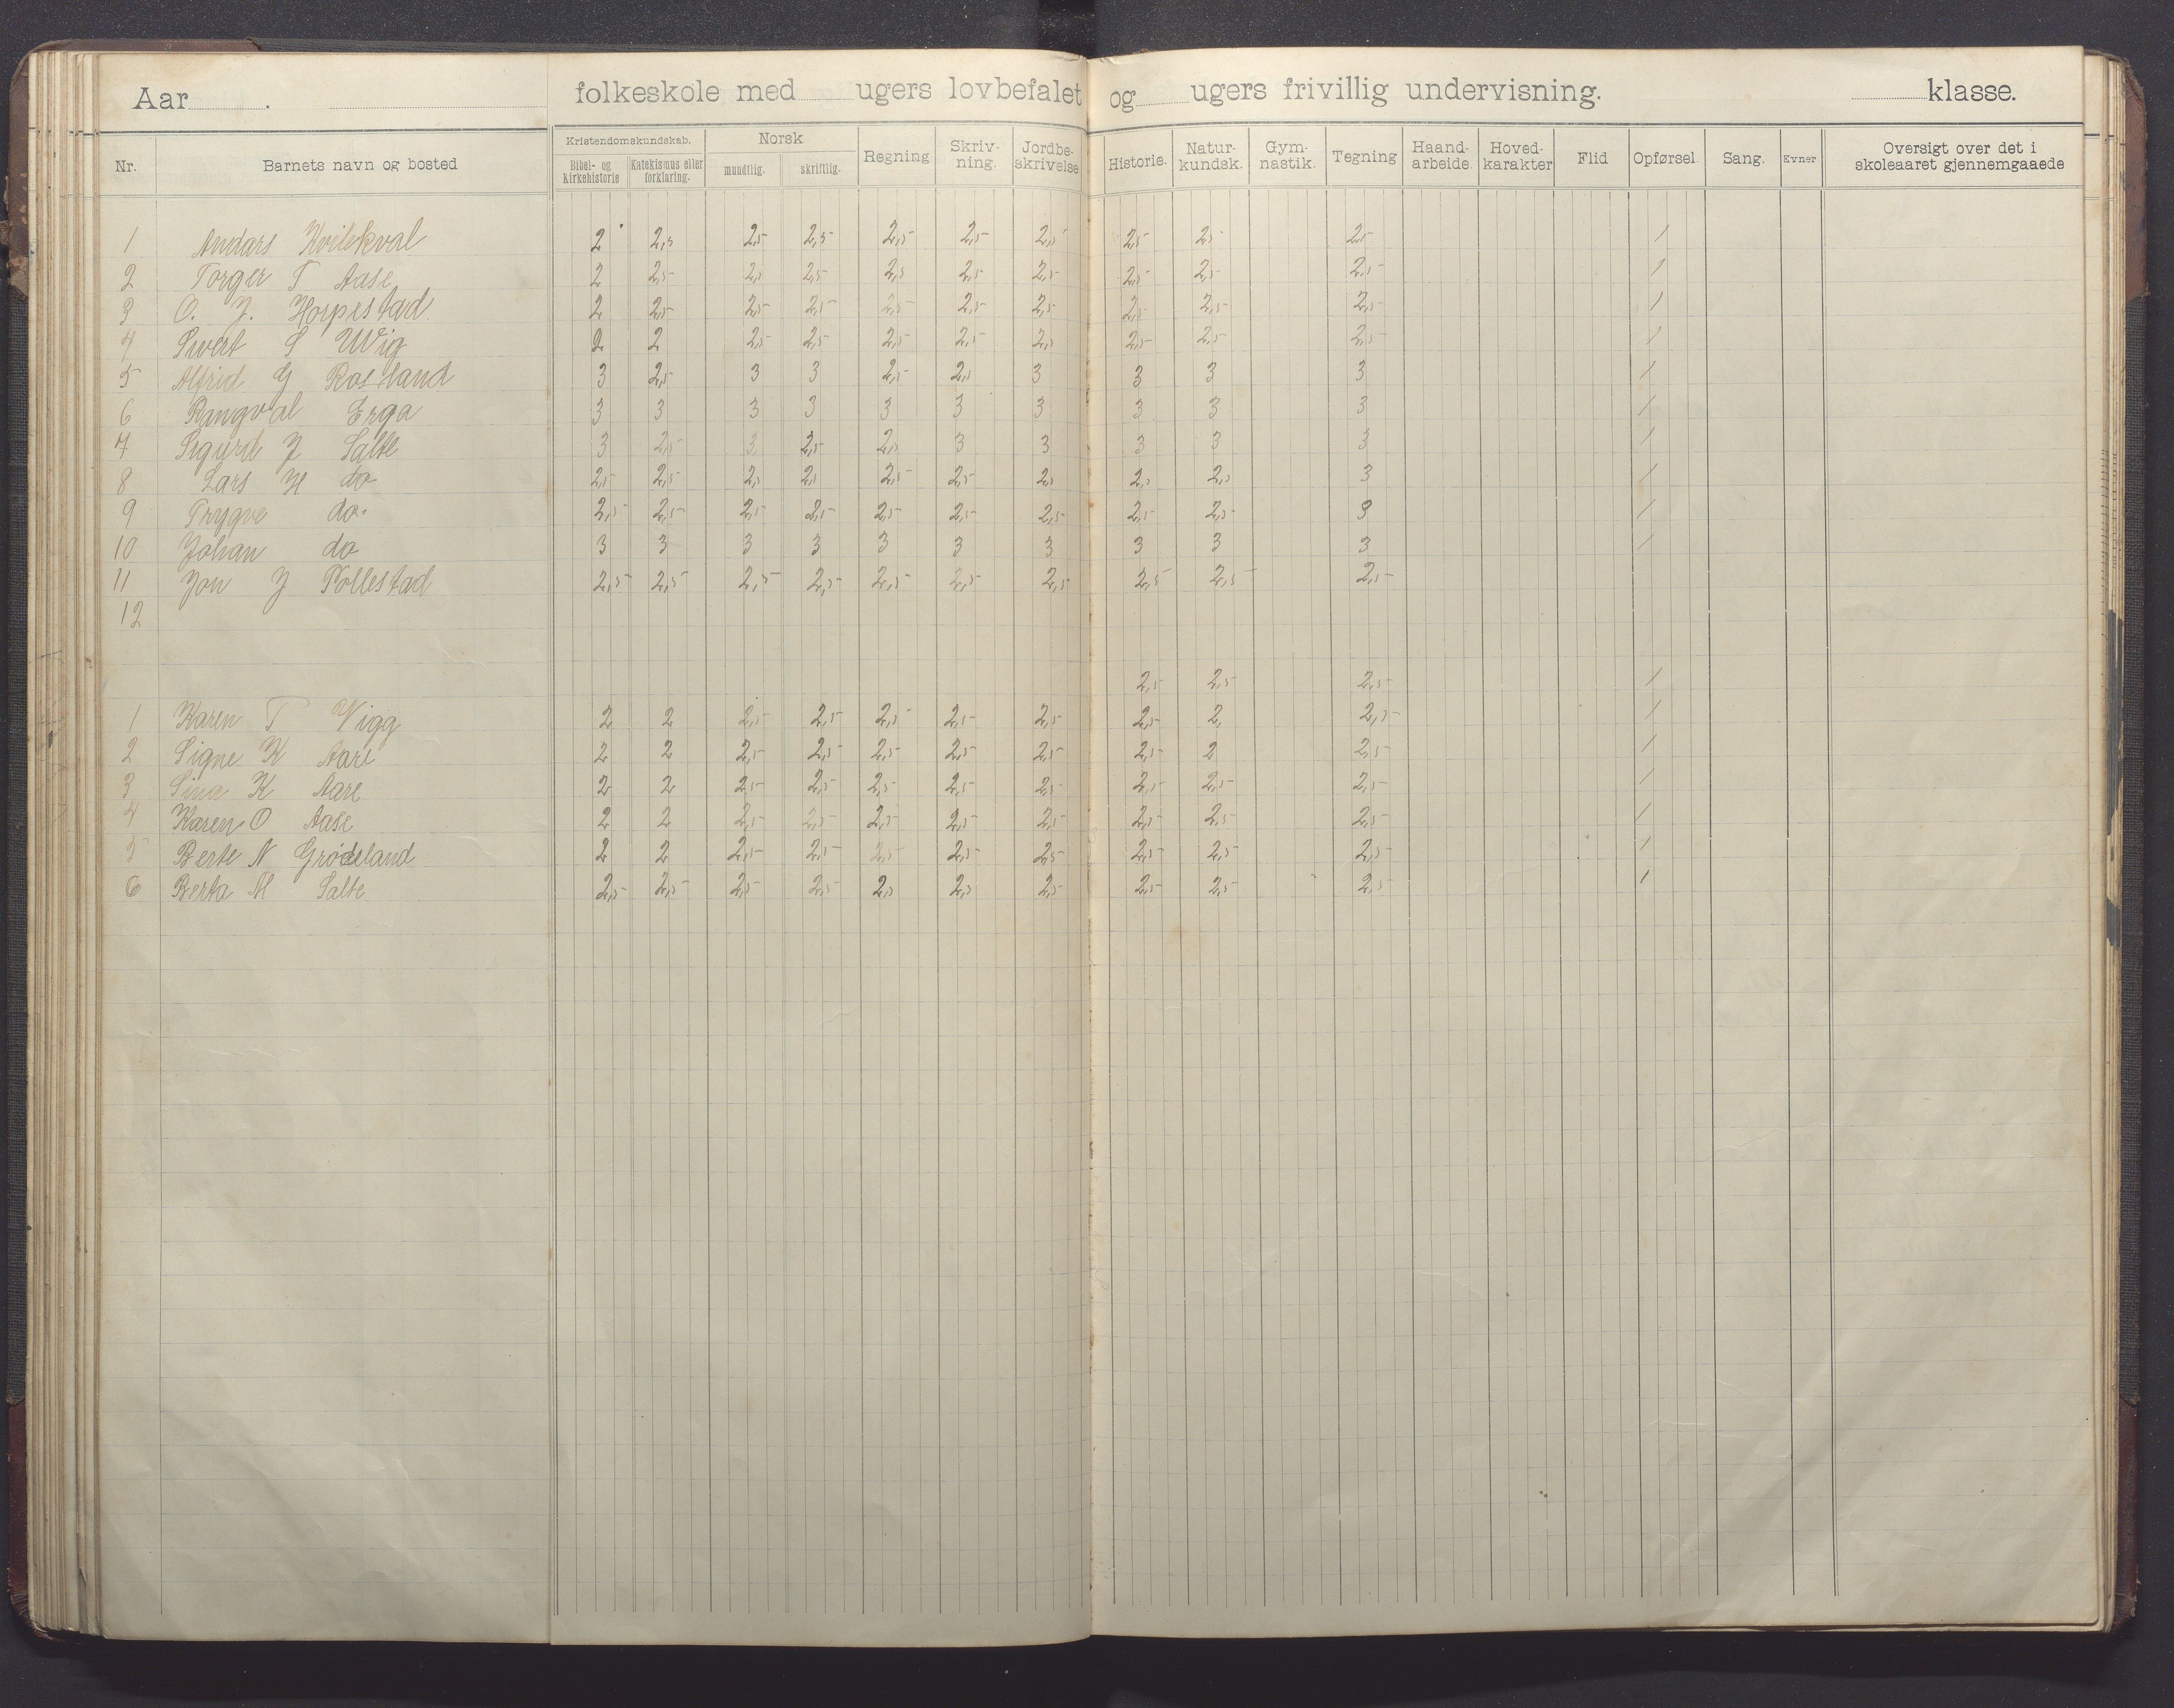 Aar . folkeskole med ugers lovbefalet og ugers frivillig undervisning. klasse.
Nr. Barnets navn og bosted Kristendomskundskab. Bibel- og kirkehistorie Katekismus eller forklaring. Norsk mundtlig. skriftlig. Regning Skriv-ning. Jordbe-skrivelse Historie. Natur-kundsk. Gym-nastik. Tegning Haand-arbeide. Hoved-karakter Flid Opførsel. Sang. Evner Oversigt over det i skoleaaret gjennemgaaede
1 Andars Kvilekval 2 2,5 2,5 2,5 2,5 2,5 2,5 2,5 2,5 2,5 1
2 Torger T Aase 2 2,5 2,5 2,5 2,5 2,5 2,5 2,5 2,5 2,5 1
3 O. J. Horpestad 2 2,5 2,5 2,5 2,5 2,5 2,5 2,5 2,5 2,5 1
4 Sivert S Wig 2 2 2,5 2,5 2,5 2,5 2,5 2,5 2,5 2,5 1
5 Alfrid G Rosland 3 2,5 3 3 2,5 2,5 3 3 3 3 1
6 Rangval Erga 3 3 3 3 3 3 3 3 3 3 1
7 Sigurd J Salte 3 2,5 3 2,5 2,5 3 3 3 3 3 1
8 Lars H do 2,5 2,5 2,5 2,5 2,5 2,5 2,5 2,5 2,5 3 1
9 Trygve do. 2,5 2,5 2,5 2,5 2,5 2,5 2,5 2,5 2,5 3 1
10 Johan do 3 3 3 3 3 3 3 3 3 3 1
11 Jon J Kollestad 2,5 2,5 2,5 2,5 2,5 2,5 2,5 2,5 2,5 2,5
12
2,5 2,5 2,5 1
1 Karen T Vigg 2 2 2,5 2,5 2,5 2,5 2,5 2,5 2, 2,5 1
2 Signe K Aare 2 2 2,5 2,5 2,5 2,5 2,5 2,5 2 2,5 1
3 Sina K Aare 2 2 2,5 2,5 2,5 2,5 2,5 2,5 2,5 2,5 1
4 Karen O Aase 2 2 2,5 2,5 2,5 2,5 2,5 2,5 2,5 2,5 1
5 Berte N Grødeland 2 2 2,5 2,5 2,5 2,5 2,5 2,5 2,5 2,5 1
6 Berta M Salte 2,5 2,5 2,5 2,5 2,5 2,5 2,5 2,5 2,5 2,5 1